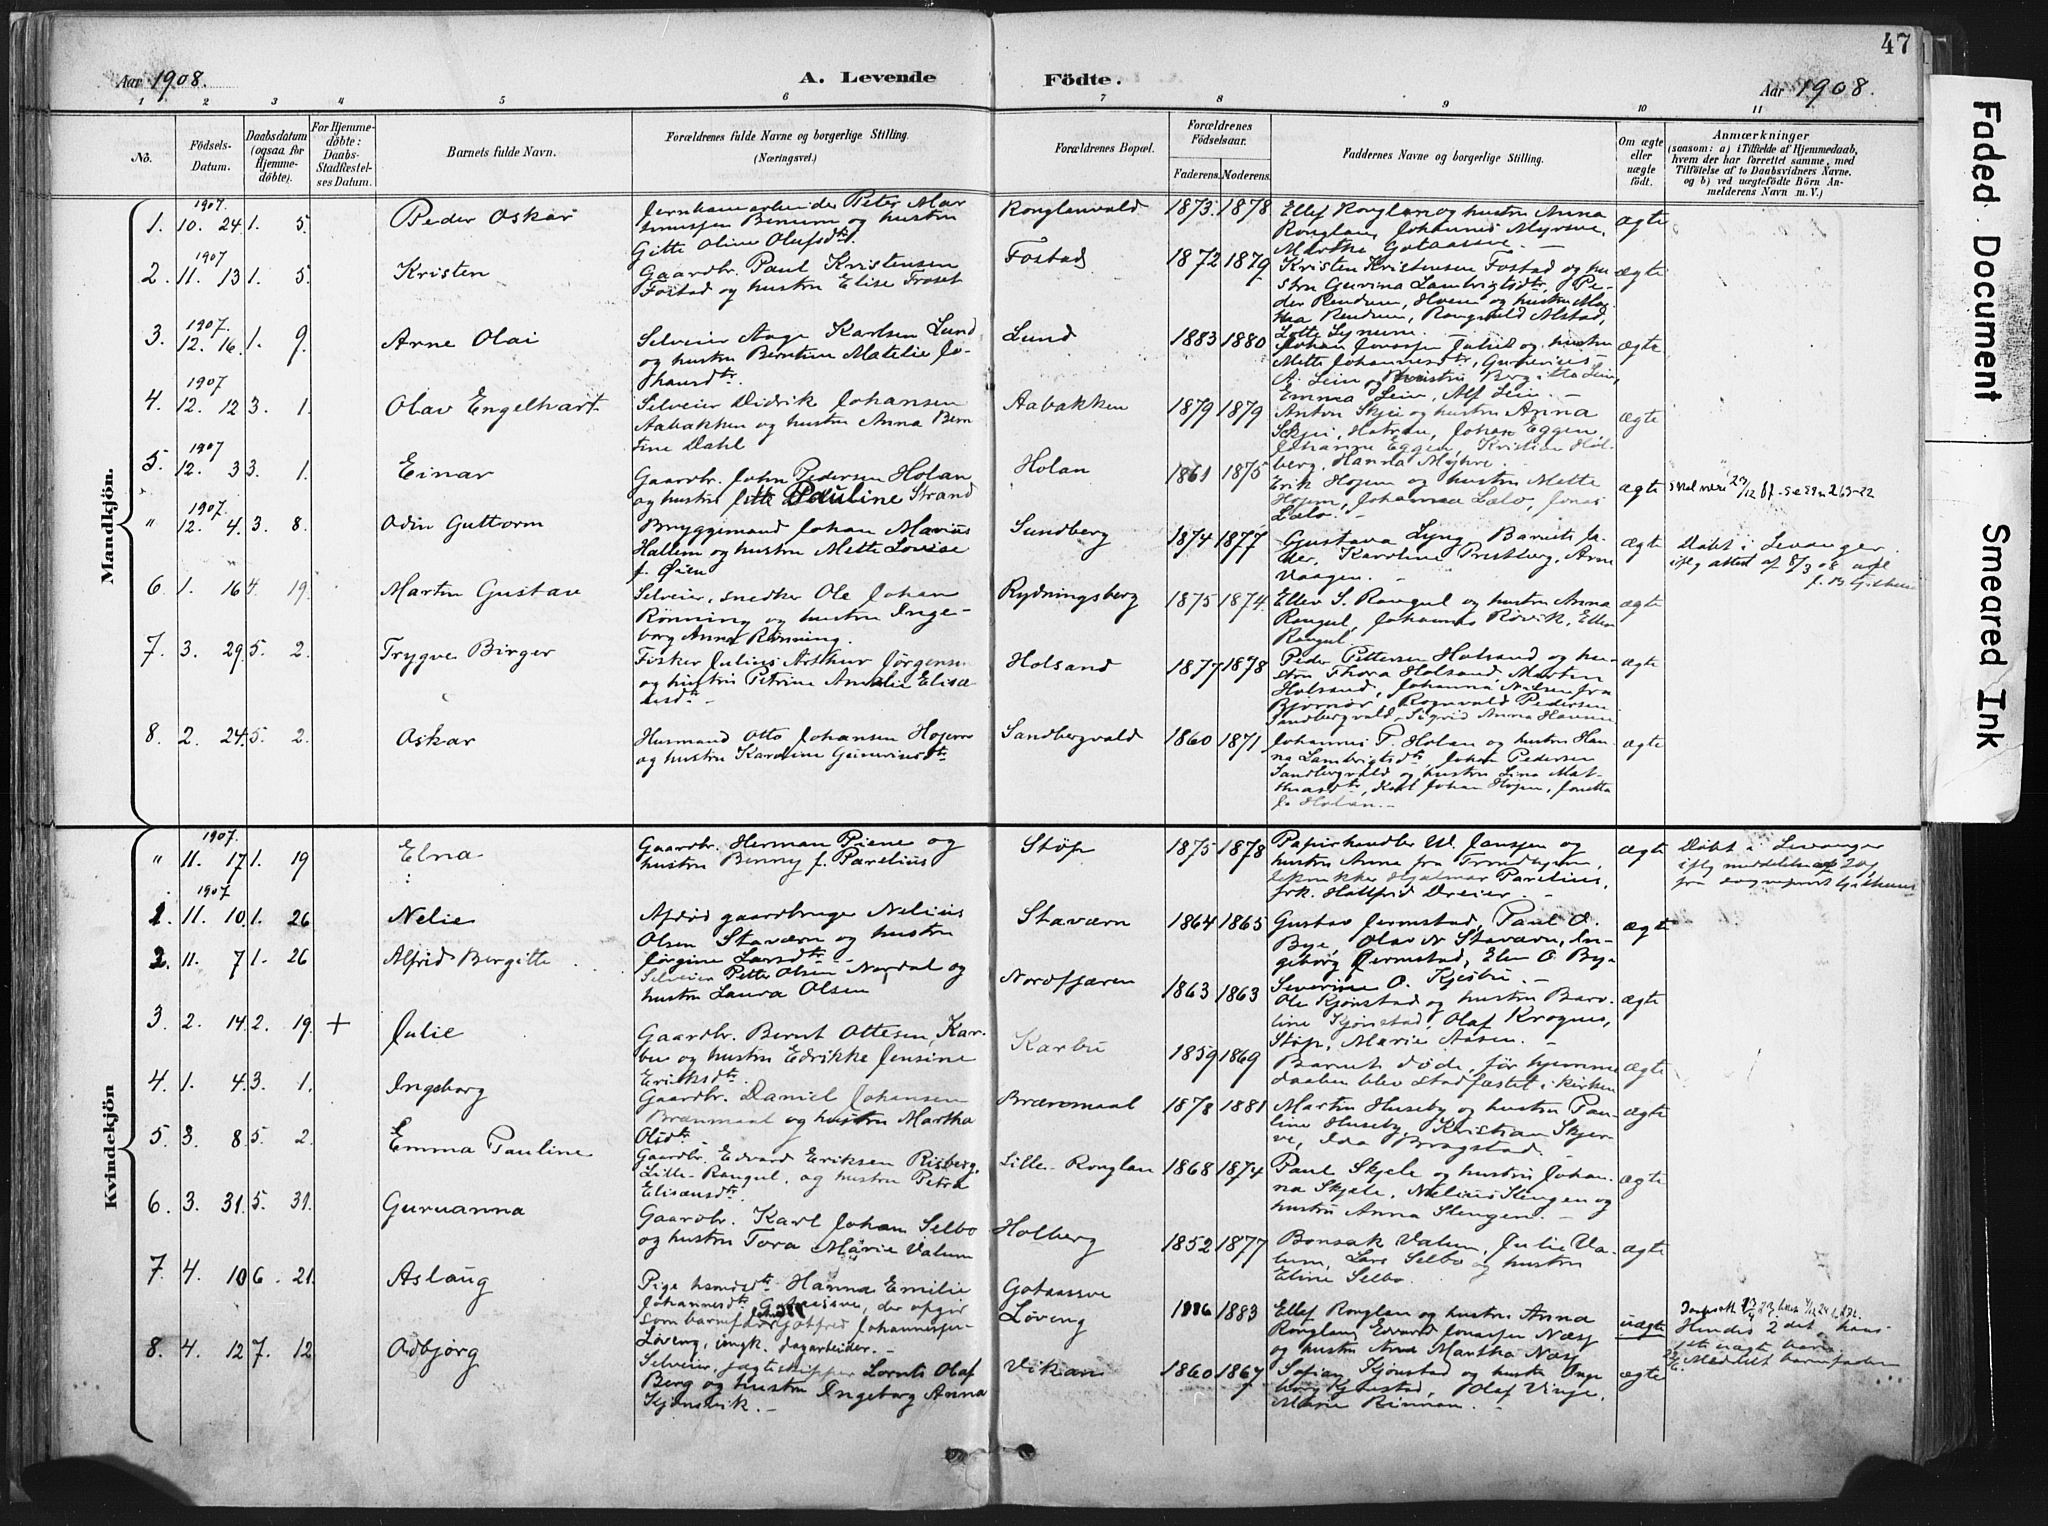 47
Aar 1908.
A. Levende
Födte.
Aar 1908.
1 2 3 4 5 6 7 8 9 10 11
No.
Födsels-
Datum.
Daabsdatum
(ogsaa for
Hjemme-
döbte).
For Hjemme-
döbte:
Daabs-
Stadfæstel-
ses Datum.
Barnets fulde Navn.
Forældrenes fulde Navne og borgerlige Stilling.
(Næringsvei.)
Forældrenes Bopæl.
Forældrenes
Födselsaar.
Faderens. Moderens.
Faddernes Navne og borgerlige Stilling.
Om ægte
eller
uægte
födt.
Anmærkninger
(saasom: a) i Tilfælde af Hjemmedaab,
hvem der har forrettet samme, med
Tilföielse af to Daabsvidners Navne.
og b) ved uægtefödte Börn An-
melderens Navn m. V.)
Mandkjön.
1907
1. 10. 24 1. 5. Peder Oskar
Jernbanearbeider Peter Mar
og hustru
Gitte Oline Olufsdtr.
Ronglanvald 1873. 1878
Ellef Ronglan og hustru Anna
Ronglan, Johannes Myrsve,
Marthe Gotaassve. —
ægte
1907
2. 11. 13 1. 5. Kristen
Gaardbr. Paul Kristensen
Fostad og hustru Elise Froset
Fostad 1872 1879
Kristen Kristensen Fostad og hu
stru Gurina Lambrigtsdtr, Pe-
der Rendum, Hveen og hustru
Rendum, Rongvald Alstad,
Lotte
ægte
1907.
3. 12. 16. 1. 9. Arne Olai
Selveier Aage Karlsen Lund
og hustru Berntine Matelie Jo-
hansdtr.
Lund 1883 1880
Johan Jonassen Julius og hustru
Mette Johannesdtr, Gunerius
A. Lein og hustru Bergitta Lein,
Emma Lein, Alf Lein. —
ægte
1907
4. 12. 12 3. 1. Olav Engelhart
Selveier Didrik Johansen
Aabakken og hustru Anna Bern
tine Dahl
Aabakken 1879 1879
Anton Skjei og hustru Anna
Skjei, Johan Eggen
Johanne Eggen, Kristian Hol-
berg, Hanna Myhre.
ægte
1907
5. 12. 3 3. 1. Einar
Gaardbr. John Pedersen Holan
og hustru Pauline Strand
Holan 1861 1875
Erik Hojem og hustru Mette
Hojem, Johannea Lalo, Jonas
Lalo. —
ægte
1907.
" 12. 4. 3. 8. Odin Guttorm
Bryggemand Johan Marius
Hallem og hustru Mette Lovise
f. Øien
Sundberg 1874 1877
Gustava Lyng, Barnets fa-
der, Karoline Prestberg, Arne
Vaagen. —
ægte
Døbt i Levanger
iflg. attest af 8/3 08
6. 1. 16 4. 19. Martin Gustav
Selveier, snedker Ole Johan
Rønning og hustru Inge-
borg Anna Rønning.
Rydningsberg 1875 1874.
Ellev S. Rongul og hustru Anna
Rongul, Johannes Røvik, Ellen
Rongul
ægte
7. 3. 29. 5. 2. Trygve Birger
Fisker Julius Arthur Jørgensen
og hustru Petrine Amalie Elise
Holsand 1877 1878
Peder Pettersen Holsand og hu-
stru Thora Holsand, Martin
Holsand, Johanna Nilsen fra
Bjørnør, Rognvald Pedersen
Sandbergvald, Sigrid Anna
ægte
8. 2. 24. 5. 2. Oskar
Husmand Otto Johansen Hojem
og hustru Karoline Guneriusdtr
Sandbergvald 1860 1871
Johannes P. Holan og hustru Han-
na Lambrigtsdtr, Johan Pedersen
Sandbergvald og hustru Lina Mat-
hiasdtr, Karl Johan Hojem, Jonetta
J. Holan. —
ægte
Kvindekjön
1907.
" 11. 17 1. 19 Elna
Gaardbr. Herman Piene og
hustru Benny f. Parelius
Støp 1875 1878
Papirhandler W. Janssen og
hustru Anna fra Trondhjem,
Hjalmar Parelius,
frk. Hallfrid Dreier. —
ægte
Døbt i Levanger
iflg meddelelse af
fra sogneprest
1907
1. 11. 10. 1. 26 Nelie
Afdød gaardbruger Nelius
Olsen Staværn og hustru
Jørgine Larsdtr —
Staværn 1864 1865
Gustav Jermstad, Paul O.
Bye, Olav N. Staværn, In-
geborg Jermstad, Elen O. Bye
Severine O. Kjesbu. —
ægte
2. 11. 7 1. 26 Alfrid Bergitte
Selveier Petter Olsen Nordal og
hustru Laura Olsen
Nordfjæren 1863 1863
Ole Kjønstad og hustru
Kjønstad, Olaf Krognes,
Støp, Marie Aasen. —
ægte
3. 2. 14. 2. 19. + Julie
Gaardbr. Bernt Ottesen, Kar-
bu og hustru Edrikke Jensine
Eriksdtr.
Karbu 1859 1869
Barnet døde, før hjemme
daaben blev stadfæstet i kirken
ægte
4. 1. 4. 3. 1. Ingeborg
Gaardbr. Daniel Johansen
Brænmaal og hustru Martha
Olsdtr
Brænmaal 1878 1881
Martin Huseby og hustru Pau-
line Huseby, Kristian Skjer-
ve, Ida Bragstad.
ægte
5. 3. 8 5. 2. Emma Pauline
Gaardbr. Edvard Eriksen Risberg,
Lille-Rongul, og hustru Petra
Eliseusdtr.
Lille-Ronglan 1868 1874
Paul Skjele og hustru Johan-
na Skjele, Nelius Slengen og
hustru Anna Slengen. —
ægte
6. 3. 31. 5. 31. Guruanna
Gaardbr. Karl Johan Selbo
og hustru Tora Marie Valum
Holberg 1852 1877
Bonsak Valum, Julie Va-
lum, Lars Selbo og hustru
Eline Selbo.
ægte
7. 4. 10 6. 21. Aslaug
Pige Hanna Emilie
Johannesdtr Gotaassve, der opgir
som barnefader Gotfred Johannessen
Løveng, ungk. dagarbeider. —
Gotaassve
Løveng 1886 1883
Ellef Ronglan og hustru Anna
Ronglan, Edvard Jonassen Næss
og hustru Anne Martha Næss
uægte
Hendes 2det, hans
1ste uægte barn.
Meddelt barnefaderen
8. 4. 12 7. 12 Odbjørg
Selveier, jagteskipper Lornts Olaf
Berg og hustru Ingeborg Anna
Kjønsvik. —
Vikan 1860 1867
Sofian Kjønstad og hustru Inge
borg Kjønstad, Olaf Vinje,
Marie Rinnan. —
ægte
Faded Document
Smeared Ink